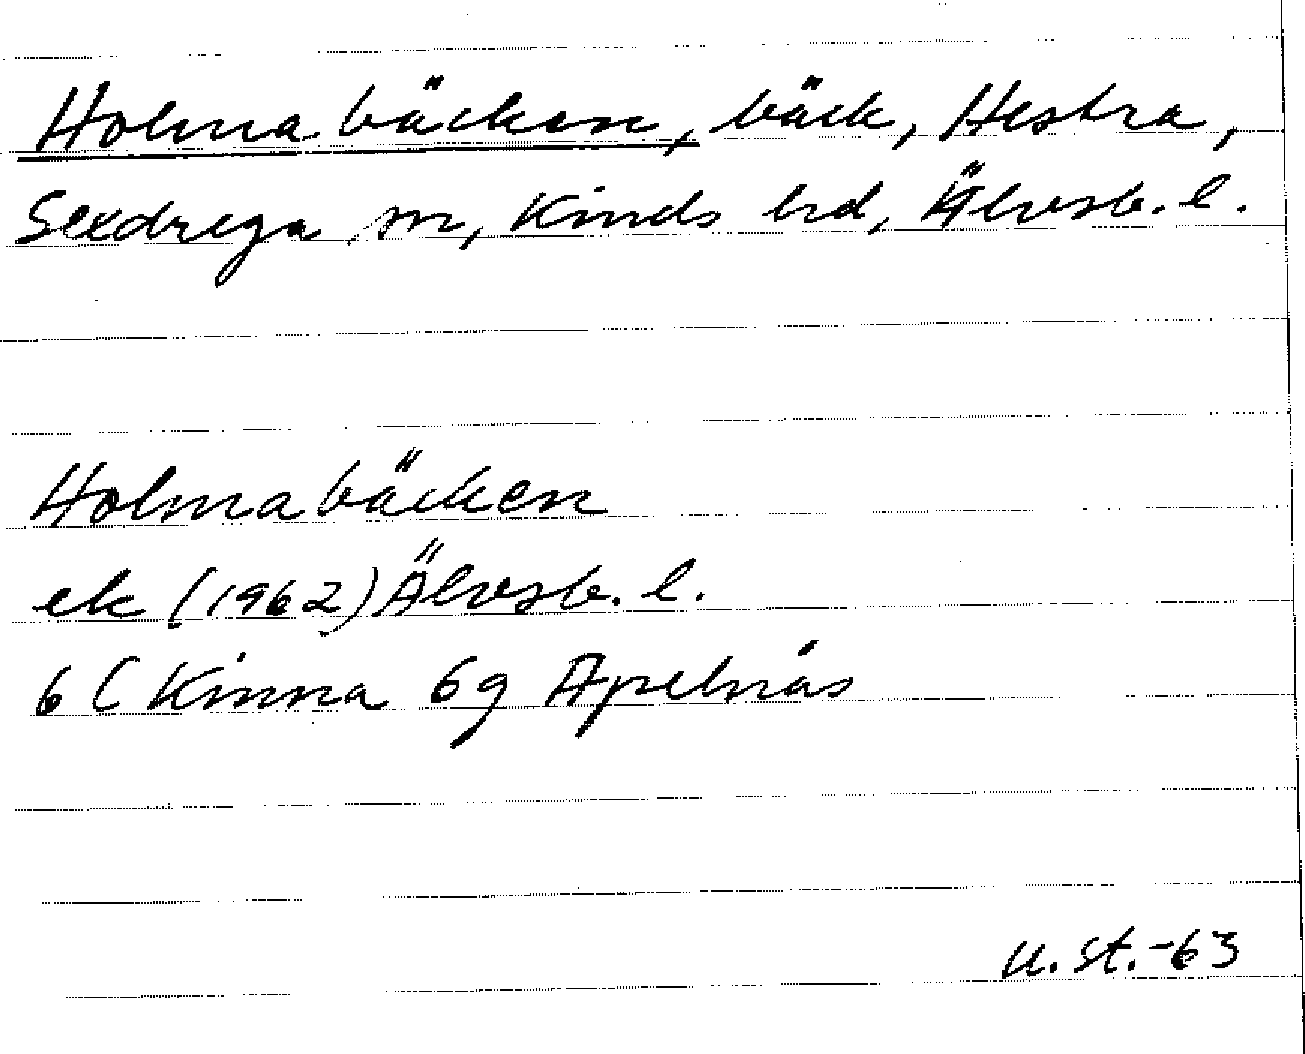 Holmabäcken, bäck, Hestra,
Sexdrega sn, Kinds hd, Älvsb. l.
Holmabäcken
ek (1962) Älvsb. l.
6 C Kinna 6g Apelnäs
u.st.-63